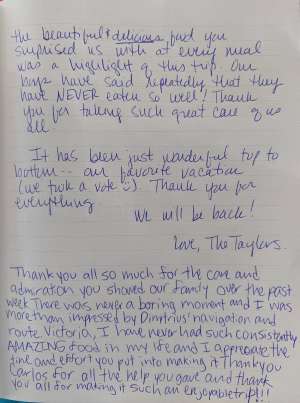 the beautiful & delicious food you
surprised us with at every meal
was a highlight of this trip. Our
boys have said repeatedly that they
have NEVER eaten so well! Thank
you for taking such great care of us
all.
It has been just wonderful top to
bottom -- our favorite vacation
(we took a vote :)). Thank you for
everything.
We will be back!
Love, The Taylors
Thank you all so much for the care and
admiration you showed our family over the past
week. There was never a boring moment and I was
more than impressed by Dimitrius' navigation and
route. Victoria, I have never had such consistently
AMAZING food in my life and I appreciate the
time and effort you put into making it. Thank you
Carlos for all the help you gave and thank
you all for making it such an enjoyable trip!!